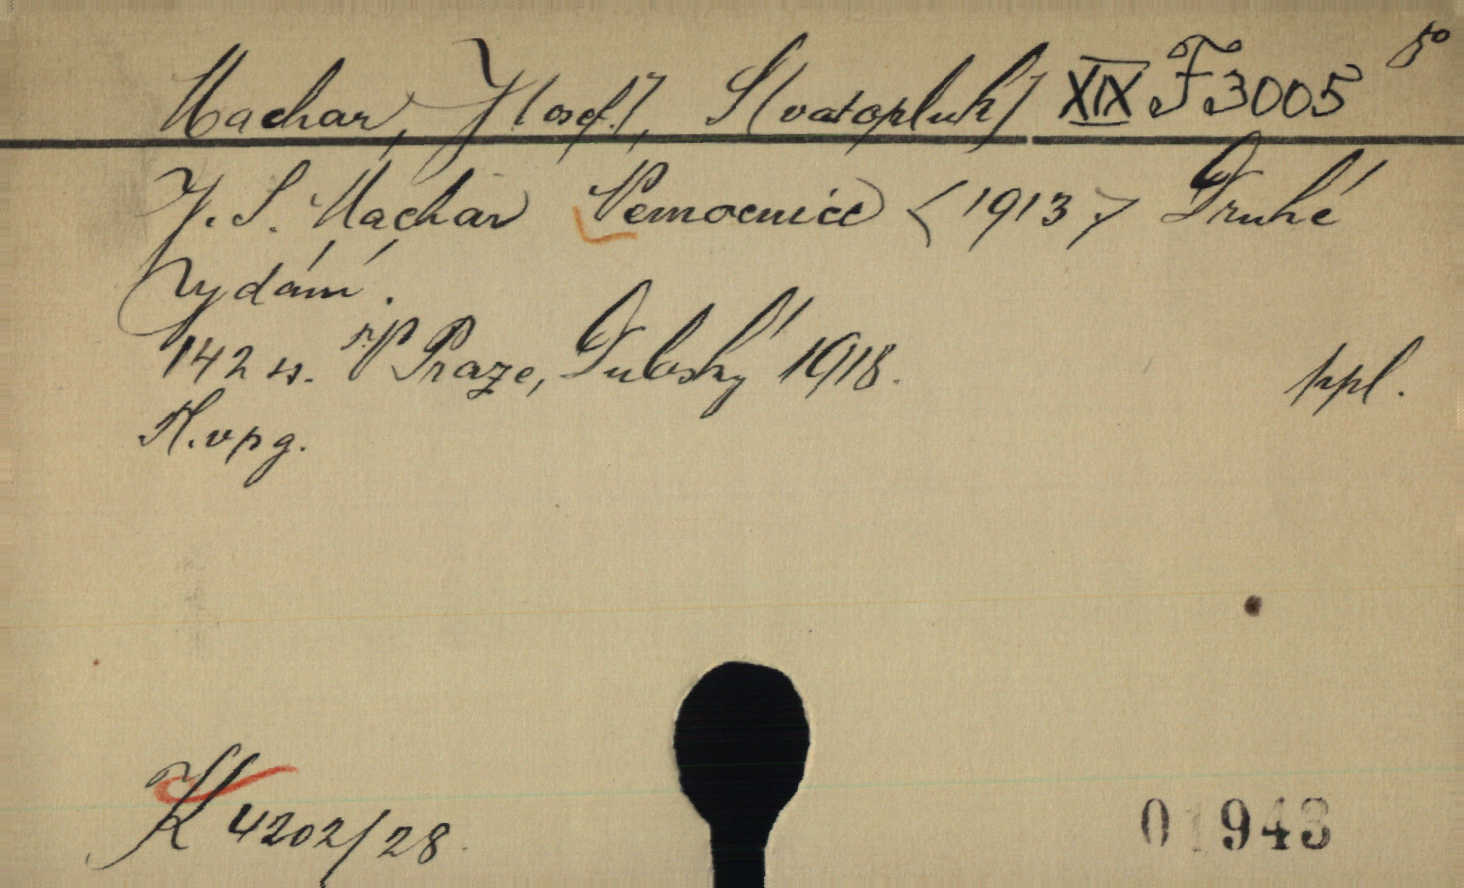 Machar, J[osef.], S[vatopluk] XIX F 3005 8°
J. S. Machar Nemocnice <1913> Druhé
vydání.
142 s. V Praze, Dubský 1918. ppl.
K. vpg.
K 4202/28
01943